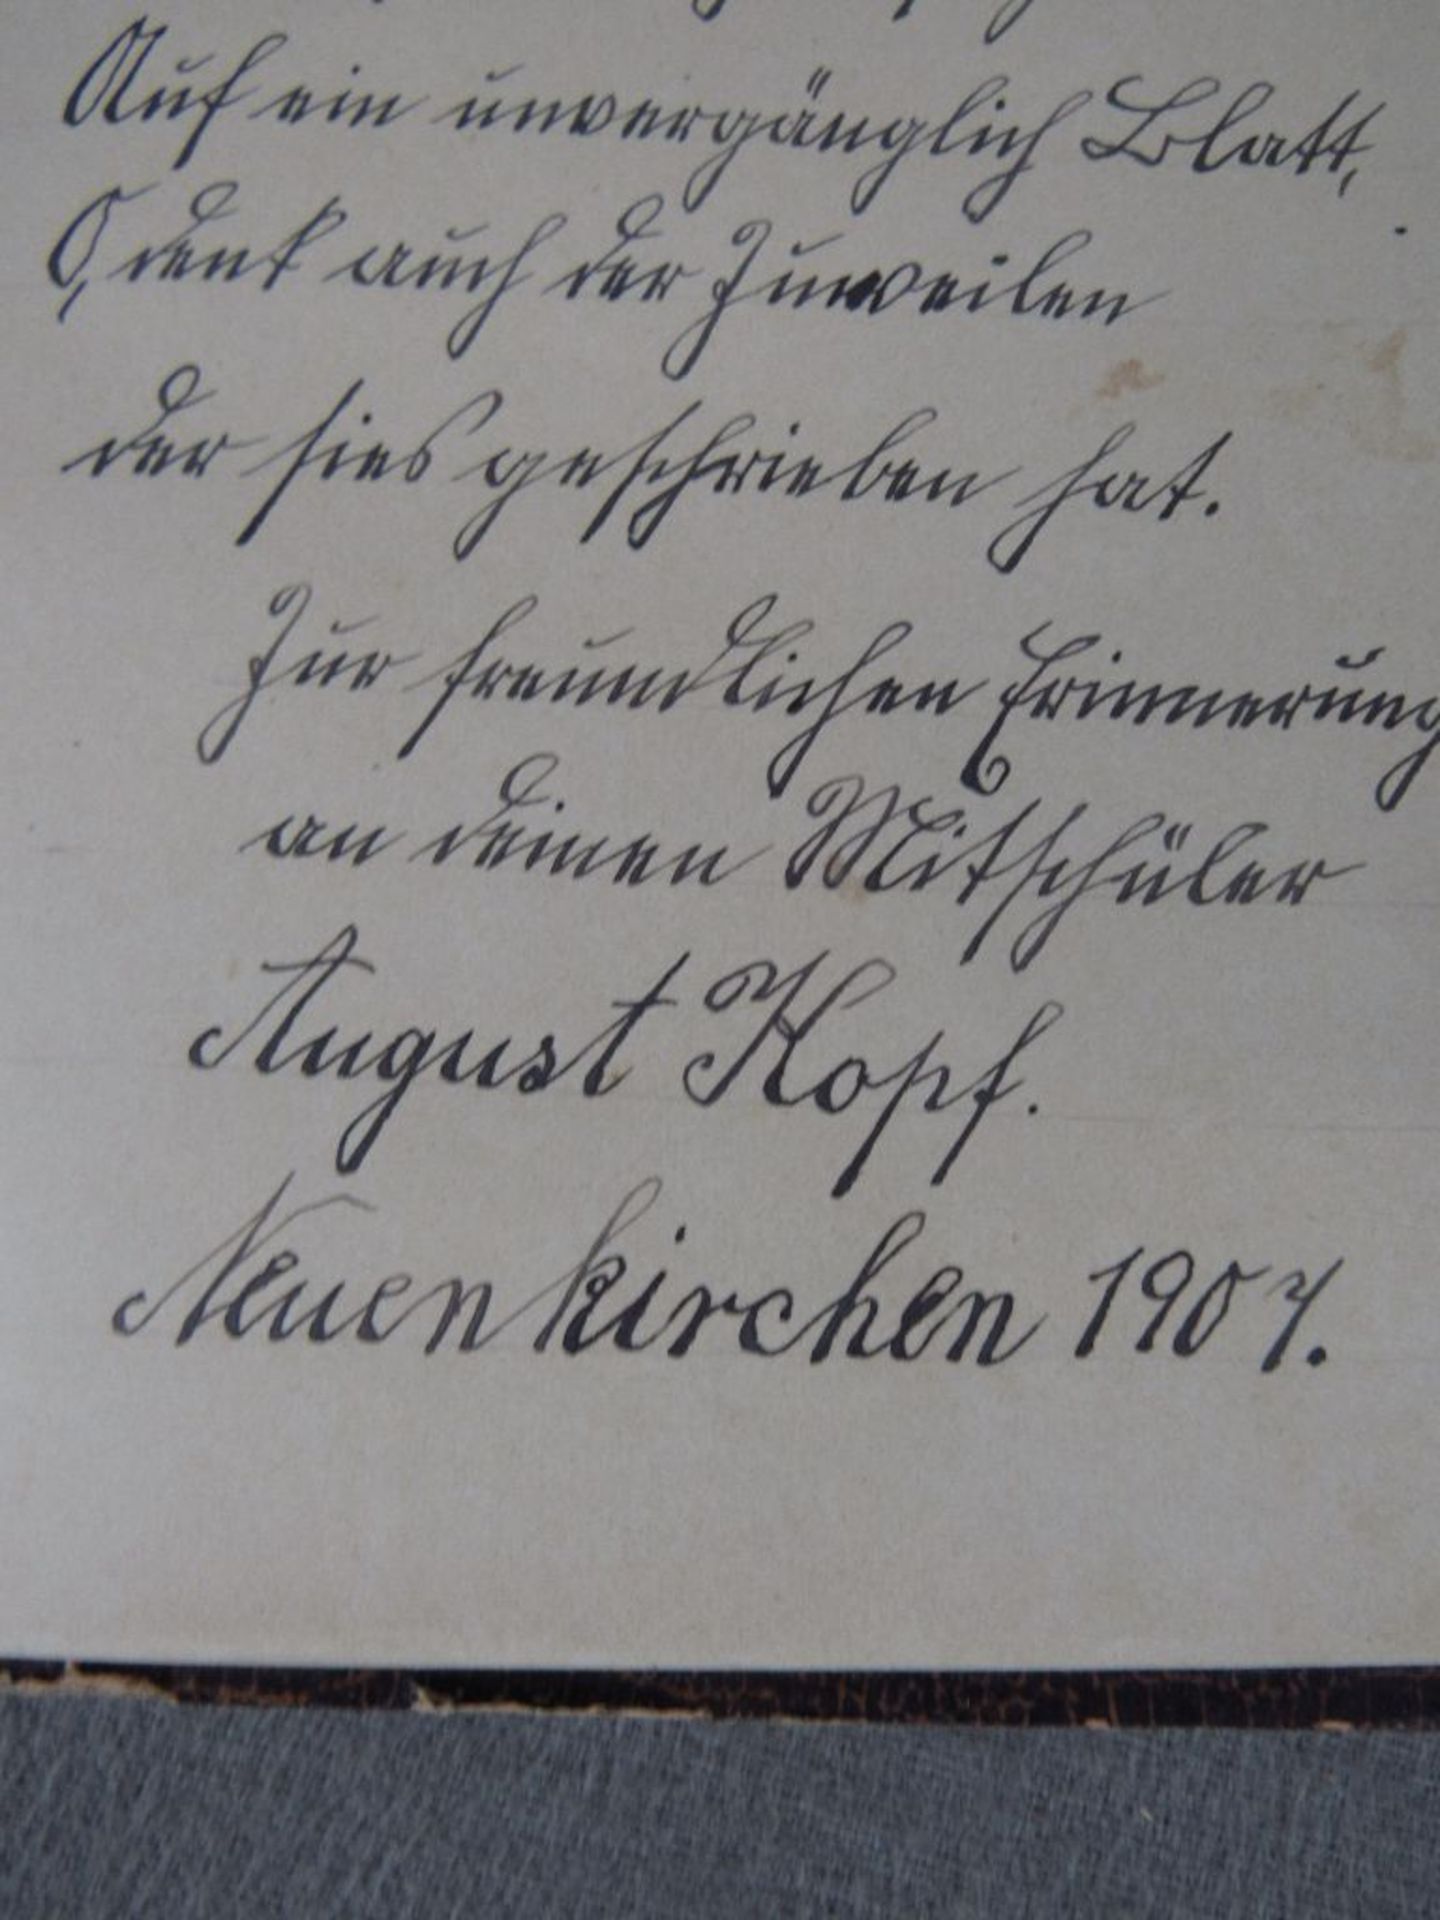 Auf ein unvergänglich Blatt,
O, denk auch der zuweilen
der sies geschrieben hat.
Zur freundlichen Erinnerung
an deinen Mitschüler
August Kopf.
Neuenkirchen 1907.